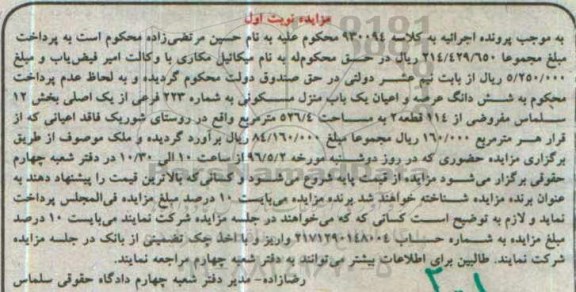 مزایده نوبت اول
به موجب پرونده اجرائیه به کلاسه ۹۳۰۰۹۴ محکوم علیه به نام حسین مرتضی‌زاده محکوم است به پرداخت
مبلغ مجموعا ۲۱۴/۴۲۹/۶۵۰ ریال در حسق محکوم‌له به نام میکائیل مکاری با وکالت امیر فیض‌یاب و مبلغ
۵/۲۵۰/۰۰۰ ریال از بابت نیم عشر دولتی در حق صندوق دولت محکوم گردیده و به لحاظ عدم پرداخت
محکوم به شش دانگ عرصه و اعیان یک باب منزل مسکونی به شماره ۲۲۳ فرعی از یک اصلی بخش ۱۲
سلماس مفروضی از ۱۱۴ قطعه۲ به مساحت ۵۲۶/۴ مترمربع واقع در روستای شوریک فاقد اعیانی که از
قرار هر مترمربع ۱۶۰/۰۰۰ ریال مجموعا مبلغ ۸۴/۱۶۰/۰۰۰ ریال برآورد گردیده و ملک موصوف از طریق
برگزاری مزایده حضوری که در روز دوشنبه مورخه ۹۶/۵/۲ از ساعت ۱۰ الی ۱۰/۳۰ در دفتر شعبه چهارم
حقوقی برگزار می‌شود مزایده از قیمت پایه شروع می‌شود و کسانی‌که بالاترین قیمت را پیشنهاد دهند به
عنوان برنده مزایده شناخته خواهند شد برنده مزایده می‌بایست ۱۰ درصد مبلغ مزایده فی‌المجلس پرداخت
نماید و لازم به توضیح است کسانی که که می‌خواهند در جلسه مزایده شرکت نمایند می‌بایست ۱۰ درصد
مبلغ مزایده به شماره حساب ۲۱۷۱۲۹۰۱۴۸۰۰۴ واریز و با اخذ چک تضمینی از بانک در جلسه مزایده
شرکت نمایند. طالبین برای اطلاعات بیشتر می‌توانند به دفتر شعبه چهارم مراجعه نمایند.
رضازاده- مدیر دفتر شعبه چهارم دادگاه حقوقی سلماس